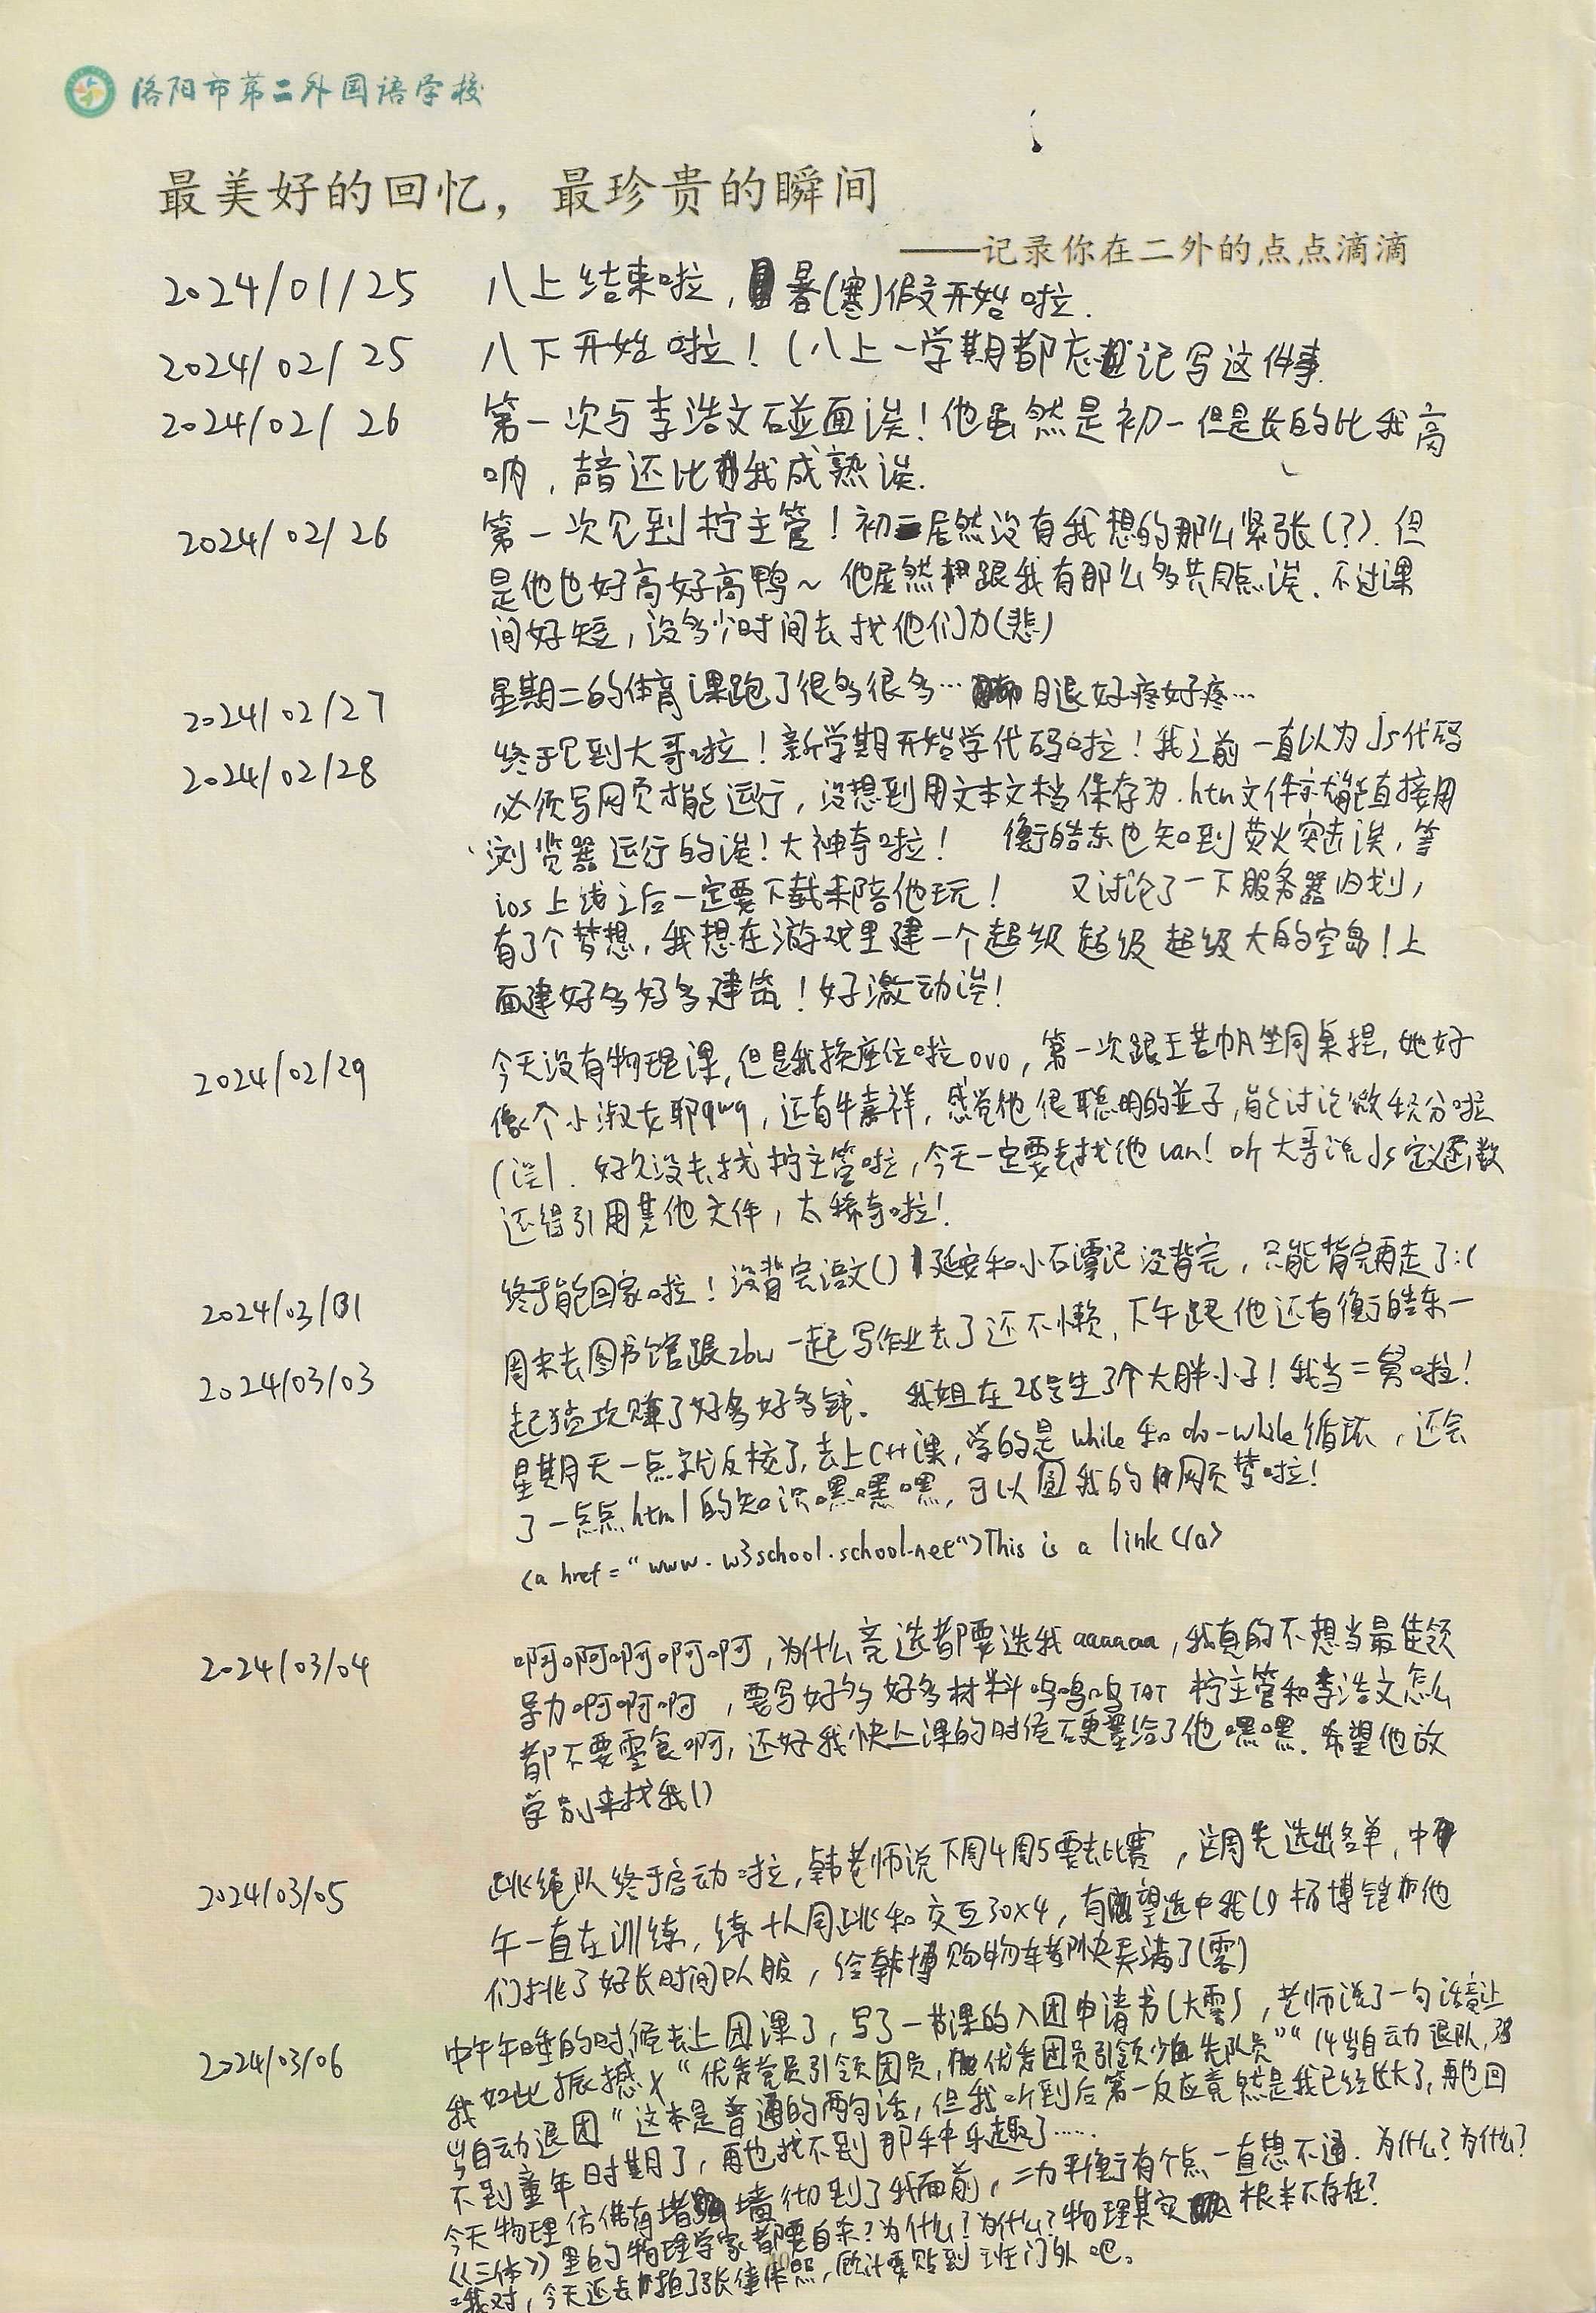 洛阳市第二外国语学校
最美好的回忆，最珍贵的瞬间
——记录你在二外的点点滴滴
2024/01/25 八上结束啦，暑(寒)假开始啦.
2024/02/25 八下开始啦！(八上一学期都忘记写这件事.
2024/02/26 第一次与李浩文碰面诶！他虽然是初一但是长的比我高
呐，声音还比我成熟诶.
2024/02/26 第一次见到柠主管！初三居然没有我想的那么紧张(?).但
是他也好高好高鸭~ 他居然跟我有那么多共同点诶.不过课
间好短，没多少时间去找他们力(悲)
2024/02/27 星期二的体育课跑了很多很多… 腿好疼好疼…
2024/02/28 终于见到大哥啦！新学期开始学代码啦！我之前一直以为Js代码
必须写网页才能运行，没想到用文本文档保存为.htm文件就能直接用
浏览器运行的诶！大神奇啦！ 衡皓东也知到萤火突击诶，等
ios上线之后一定要下载来陪他玩！ 又讨论了一下服务器归划，
有了个梦想，我想在游戏里建一个超级超级超级大的空岛！上
面建好多好多建筑！好激动诶！
2024/02/29 今天没有物理课,但是我换座位啦ovo，第一次跟王若帆坐同桌捏,她好
像个小淑女耶qwq，还有牛嘉祥，感觉他很聪明的样子,能讨论微积分啦
(没).好久没去找柠主管啦,今天一定要去找他van！听大哥说Js定义函数
还得引用其他文件，太稀奇啦！
2024/03/01 终于能回家啦！没背完语文()延安和小石潭记没背完，只能背完再走了:(
2024/03/03 周末去图书馆跟zbw一起写作业去了还不懒,下午跟他还有衡皓东一
起猛攻赚了好多好多钱。 我姐在28号生了个大胖小子！我当二舅啦！
星期天一点就反校了,去上C++课,学的是while和do-while循环，还会
了一点点html的知识嘿嘿嘿,可以圆我的网页梦啦！
<a href="www.w3school.school.net">This is a link</a>
2024/03/04 啊啊啊啊啊,为什么竞选都要选我aaaaaa,我真的不想当最佳领
导力啊啊啊，要写好多好多材料呜呜呜TAT 柠主管和李浩文怎么
都不要零食啊,还好我快上课的时候硬塞给了他嘿嘿.希望他放
学别来找我()
2024/03/05 跳绳队终于启动啦,韩老师说下周4周5要去比赛，这周先选出名单,中
午一直在训练,练十人同跳和交互30x4,有望选中我()杨博铠和他
们挑了好长时间队服，给韩博购物车都快弄满了(雾)
2024/03/06 中午午睡的时候去上团课了,写了一节课的入团申请书(大雾)，老师说了一句话竟让
我如此振撼x "优秀党员引领团员,优秀团员引领少先队员" "14岁自动退队,28
岁自动退团"这本是普通的两句话,但我听到后第一反应竟然是我已经长大了,再也回
不到童年时期了,再也找不到那种乐趣了……
今天物理仿佛有堵墙彻到了我面前,二力平衡有个点一直想不通.为什么?为什么?
《三体》里的物理学家都要自杀?为什么!为什么?物理其实根本不存在?
哦对,今天还去拍了张集体照,估计要贴到班门外吧。